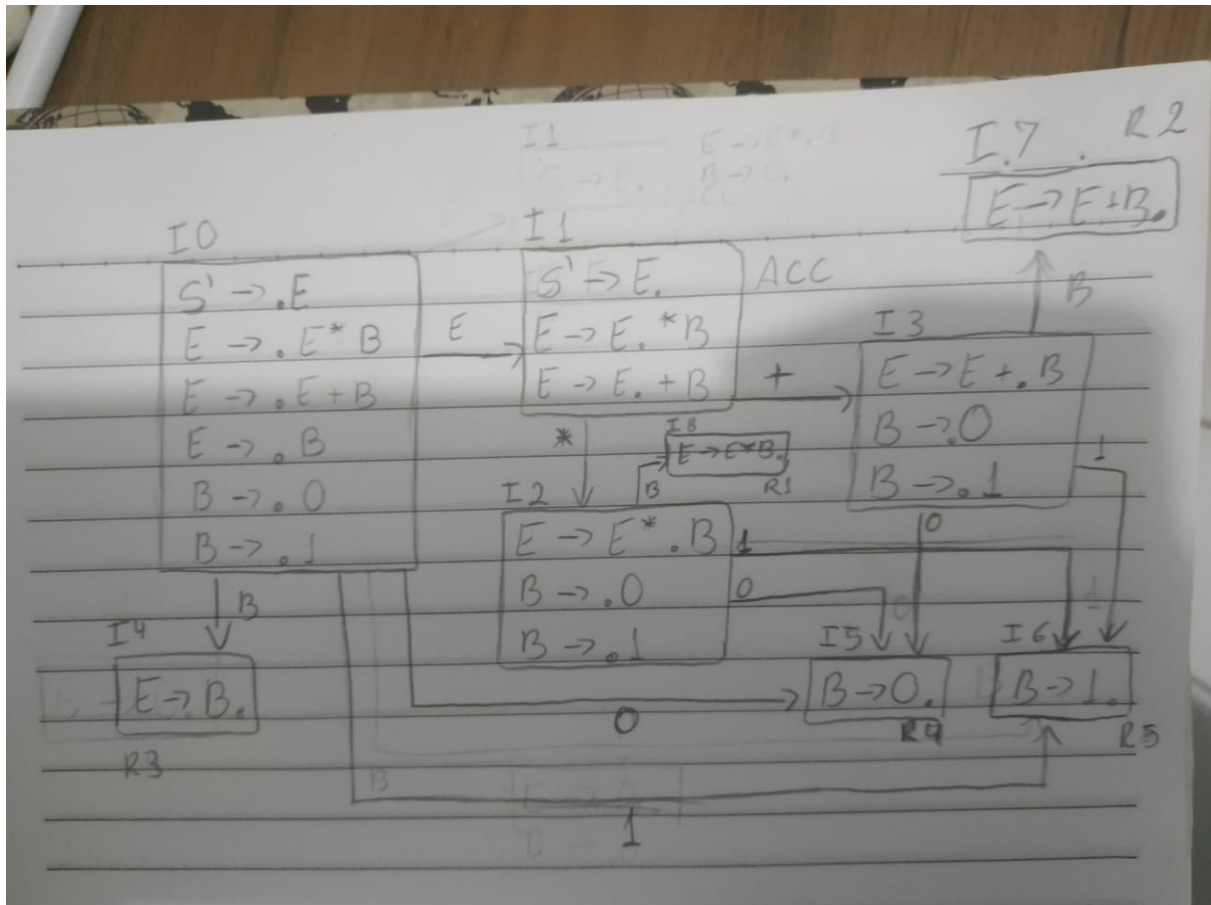 I1
E->E*.B
S->E.
B->0.
I.7 R2
E->E+B.
I0
S'->.E
E->.E*B
E->.E+B
E->.B
B->.0
B->.1
E
I1
S'->E.
E->E.*B
E->E.+B
ACC
+
B
I3
E->E+.B
B->.0
B->.1
1
0
*
I8
E->E*B.
R1
B
I2
E->E*.B
B->.0
B->.1
1
0
B
I4
E->B.
R3
I5
B->0.
R4
I6
B->1.
R5
0
B
1